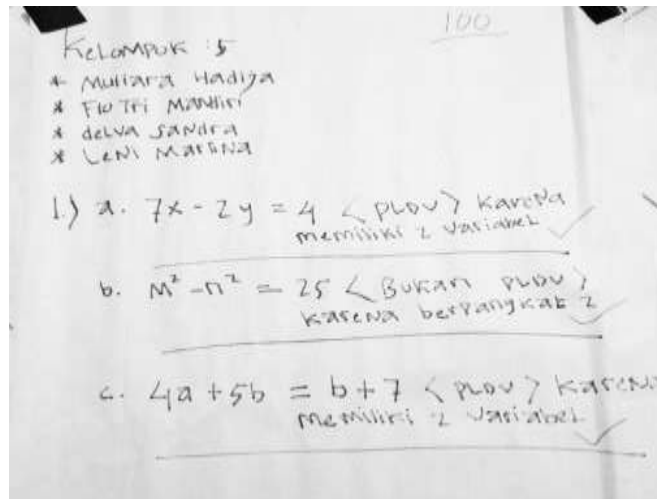 100
Kelompok : 5
* Mutiara Hadija
* Fio Tri Mandiri
* delva sandra
* Leni Marlina
1.) a. 7x - 2y = 4 < PLDV > karena
memiliki 2 variabel
b. m² - n² = 25 < Bukan PLDV >
karena berpangkat 2
c. 4a + 5b = b + 7 < PLDV > karena
memiliki 2 variabel